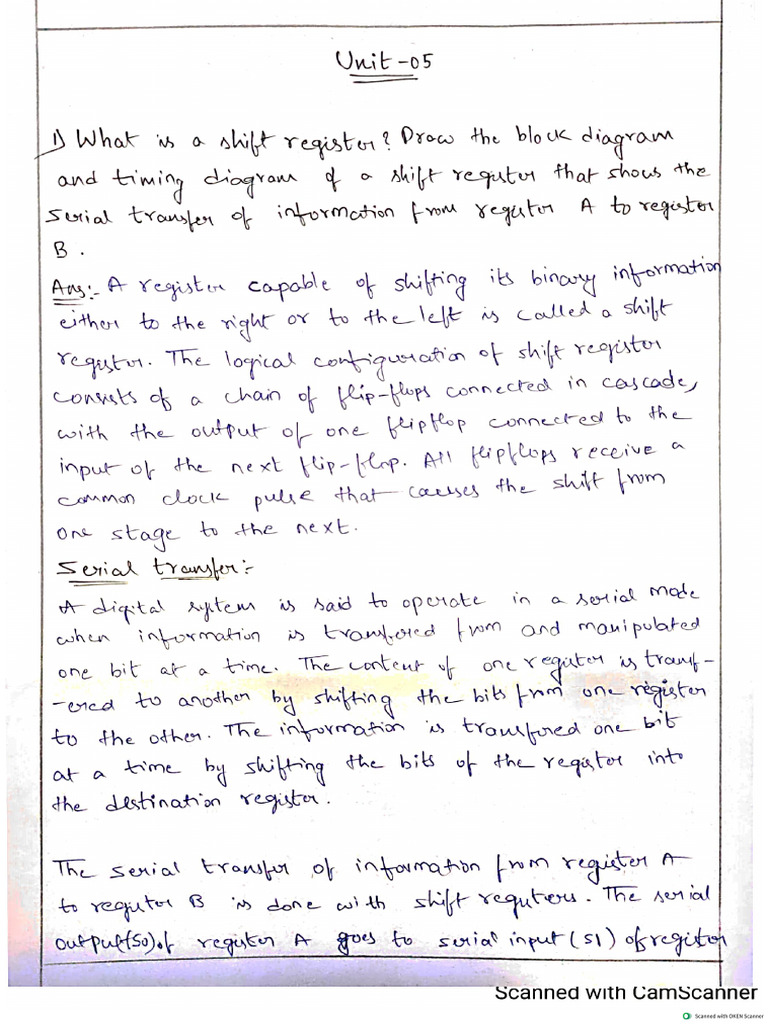 Unit-05
1) What is a shift register? Draw the block diagram
and timing diagram of a shift register that shows the
serial transfer of information from register A to register
B.
Ans:- A register capable of shifting its binary information
either to the right or to the left is called a shift
register. The logical configuration of shift register
consists of a chain of flip-flops connected in cascade,
with the output of one flipflop connected to the
input of the next flip-flop. All flipflops receive a
common clock pulse that causes the shift from
one stage to the next.
Serial transfer:-
A digital system is said to operate in a serial mode
when information is transfered from and manipulated
one bit at a time. The content of one register is transf-
-ered to another by shifting the bits from one register
to the other. The information is transfered one bit
at a time by shifting the bits of the register into
the destination register.
The serial transfer of information from register A
to register B is done with shift registers. The serial
output(SO) of register A goes to serial input (SI) of register
Scanned with CamScanner
Scanned with OKEN Scanner